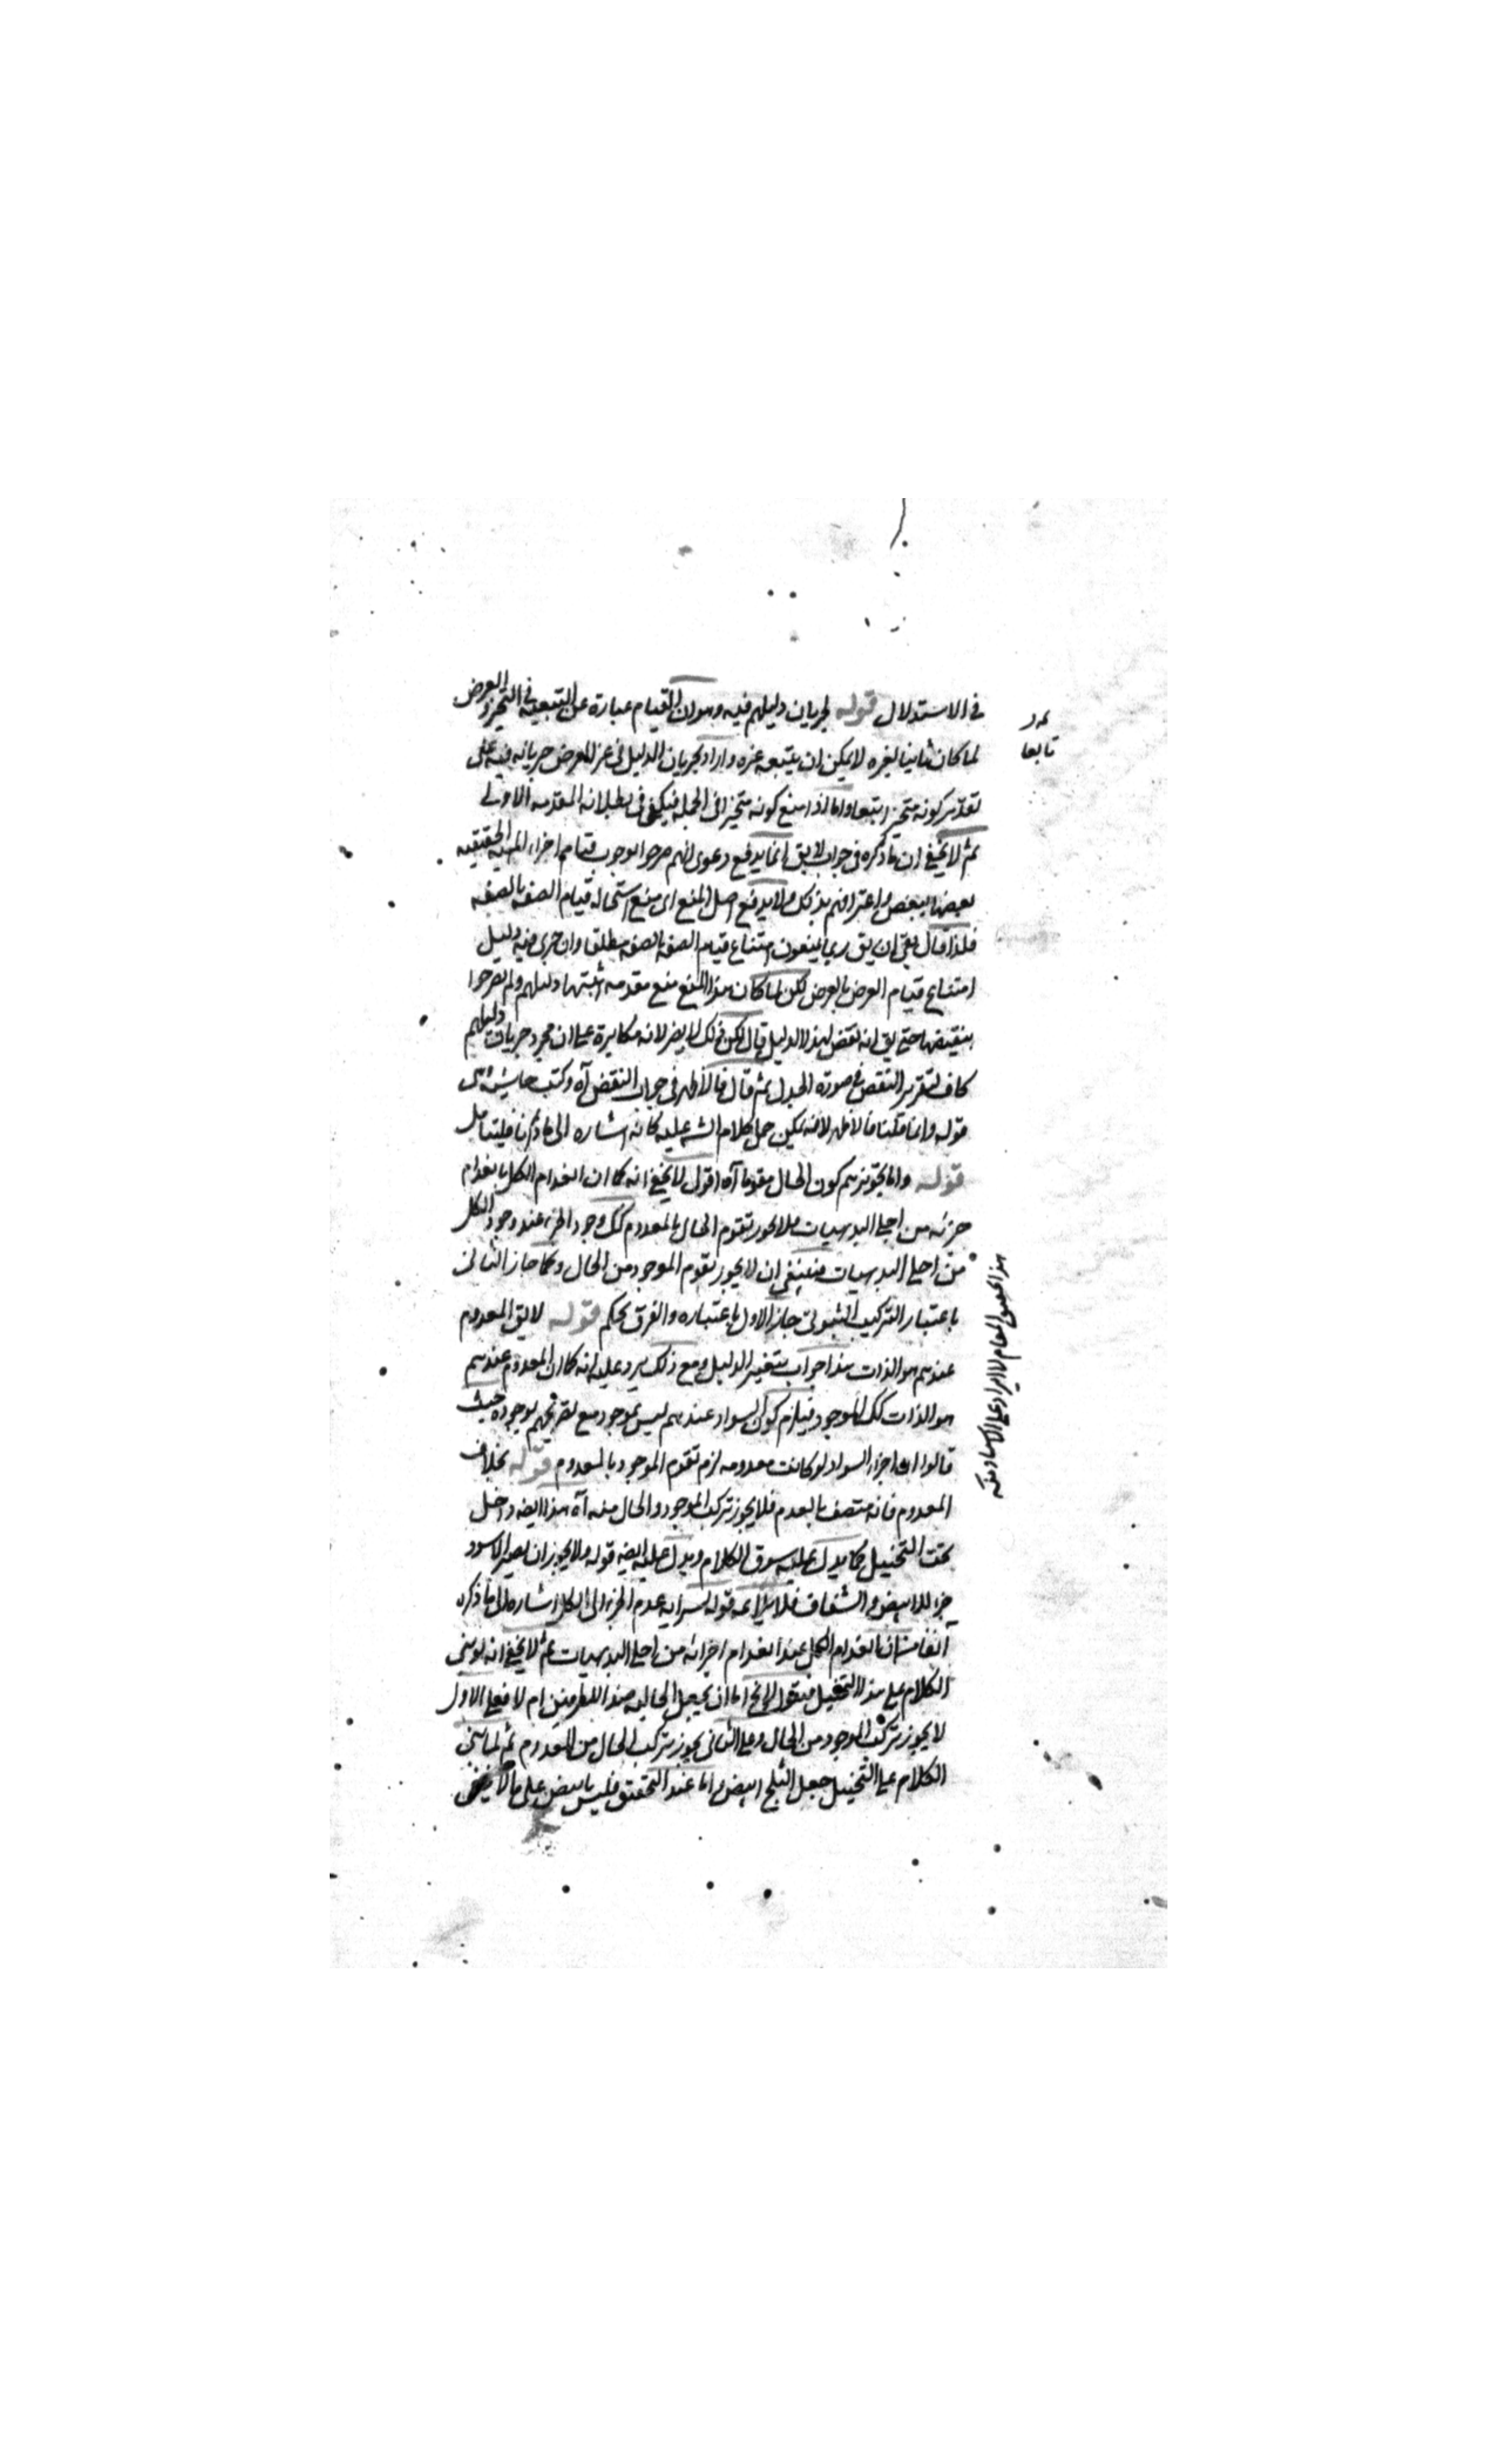 في الاستدلال قوله لجريان دليلهم فيه وهو ان القيام عبارة عن التبعية في التحيز والعرض
لما كان تابعا لغيره لا يمكن ان يتبعه غيره واراد بجريان الدليل في غير العرض جريانه فيه على
تقدير كونه متحيزا تبعا واما اذا منع كونه متحيزا في الجملة فيكفي في بطلانه المقدمة الاولى
ثم لا يخفى ان ما ذكره في جواب لا يق انما يدفع دعوى انهم صرحوا بوجوب قيام اجزاء المهية الحقيقيه
بعضها ببعض واعترافهم بذلك ولا يدفع اصل المنع اى منع استحالة قيام الصفة بالصفه
فلذا قال بقى ان يق ربما يمنعون امتناع قيام الصفة بالصفه مطلقا وان جرى فيه دليل
امتناع قيام العرض بالعرض لكن لما كان هذا المنع منع مقدمه اثبتها دليلهم ولم يصرحوا
بنقيضها حتى يق انه نقض لهذا الدليل قال لكن ذلك لا يضر لانه مكابرة على ان مجرد جريان دليلهم
كاف لتقرير النقض في صورة الجدل ثم قال فالاظهر في جواب النقض آه وكتب حاشية على
قوله وانما قلنا فالاظهر لانه يمكن حمل كلام الشه عليه كانه اشاره الى ما ذكرنا فليتامل
قوله واما تجويزهم كون الحال مقوما آه اقول لا يخفى انه كما ان انعدام الكل بانعدام
جزئه من اجلى البديهيات فلا يجوز تقوم الحال بالمعدوم كك وجود الجزء عند وجود الكل
من اجلى البديهيات فينبغى ان لا يجوز تقوم الموجود من الحال وكما جاز الثانى
باعتبار التركيب الثبوتى جاز الاول باعتباره والفرق تحكم قوله لا يق المعدوم
عندهم هو الذات هذا جواب بتغيير الدليل ومع ذلك يرد عليه انه كما ان المعدوم عندهم
هو الذات كك الموجود فيلزم كون السواد عندهم ليس بموجود مع تصريحهم بوجوده حيث
قالوا اما اجزاء السواد لو كانت معدومه لزم تقوم الموجود بالمعدوم قوله بخلاف
المعدوم فانه متصف بالعدم فلا يجوز تركب الموجود والحال منه آه هذا ايضه داخل
تحت التخييل كما يدل عليه سوق الكلام ويدل عليه ايضه قوله ولا يجوز ان يصير الاسود
جزء للابيض والشفاف فلا يلايمه قوله لسراية عدم الجزء الى الكل اشاره الى ما ذكره
آنفا من ان انعدام الكل عند انعدام اجزائه من اجلى البديهيات ثم لا يخفى انه لو بنى
الكلام على هذا التخييل فنقول لا يخ اما ان يجعل الحاليه ضد اللطرفين ام لا فعلى الاول
لا يجوز تركب الموجود من الحال وعلى الثانى يجوز تركب الحال من المعدوم ثم لما بنى
الكلام على التخييل جعل الثلج ابيض واما عند التحقيق فليس بابيض على ما
تابعا
هذا تحقيق المقام لا ايراد على الاستاد منه